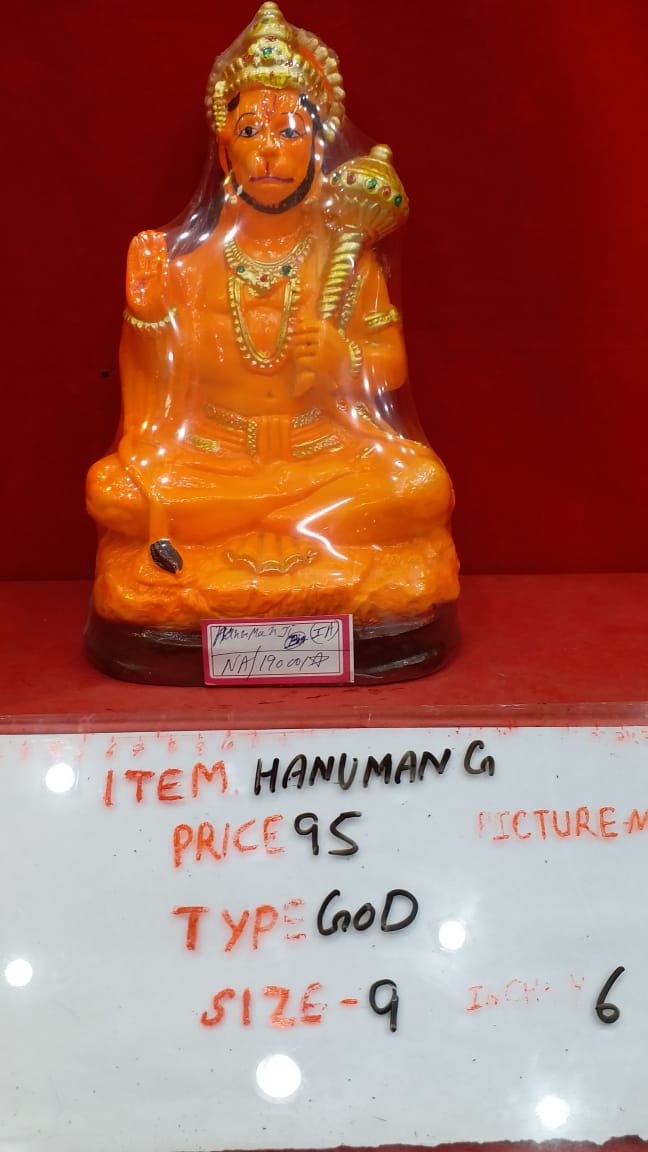 Hanuman Ji (IA)
NA/19000/
ITEM. HANUMAN G
PRICE 95
PICTURE-N
TYPE GOD
SIZE - 9 INCH 6